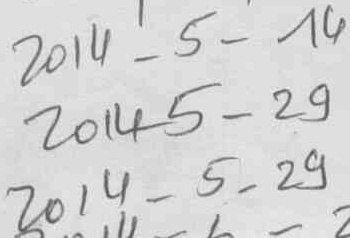 2014 - 5 - 14
2014-5 - 29
2014 - 5 - 29